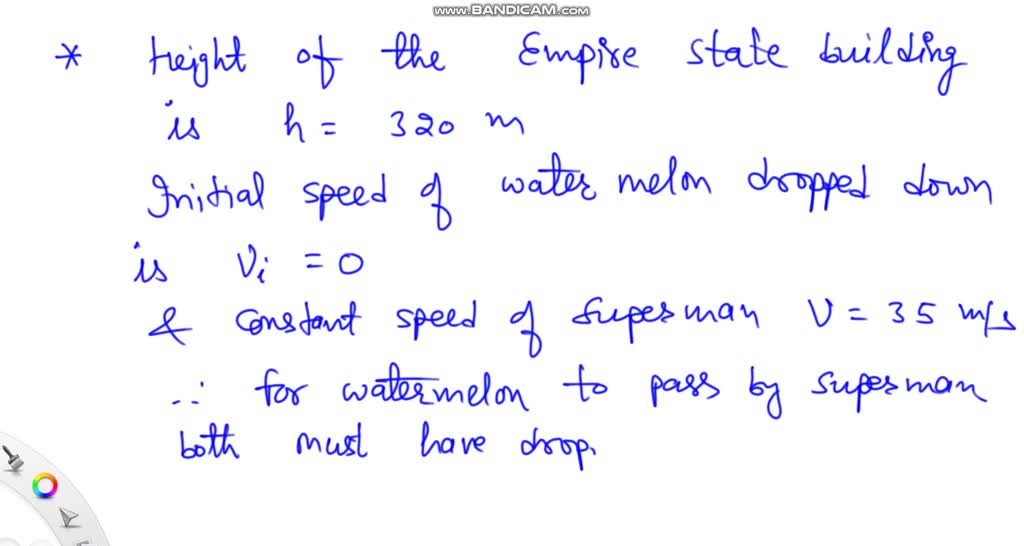 www.BANDICAM.com
* Height of the Empire state building
is h = 320 m
Initial speed of water melon dropped down
is Vi = 0
& constant speed of superman V = 35 m/s
∴ for watermelon to pass by superman
both must have drop